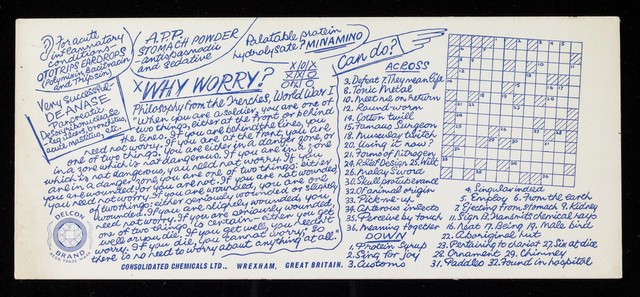 For acute
inflammatory
conditions-
OTOTRIPS EARDROPS
(Polymyxin Bacitracin
and Trypsin)
A.P.P.
STOMACH POWDER
antispasmodic
and sedative
Palatable protein
hydrolysate? MINAMINO
Very successful
DEANASE
Pancreatic
bronchitis,
acute mastitis, etc.
WHY WORRY?
Philosophy from the Trenches, World War I
"When you are a soldier, you are one of
two things, either at the front or behind
the lines. If you are behind the lines, you
need not worry. If you are at the front you are
one of two things. You are either in a danger zone, or
in a zone which is not dangerous. If you are in a zone
which is not dangerous, you need not worry. If you
are in a danger zone you are one of two things; either
you are wounded or you are not. If you are not wounded
you need not worry. If you are wounded, you are one
of two things: either seriously wounded or slightly
wounded. If you are slightly wounded, you
need not worry. If you are seriously wounded,
one of two things is certain - either you get
well or you die. If you get well, you needn't
worry. If you die, you cannot worry, so
there is no need to worry about anything at all."
DELCON
BRAND
REGD. TRADE MARK
CONSOLIDATED CHEMICALS LTD., WREXHAM, GREAT BRITAIN.
Can do?
ACROSS
3. Defeat 7. They mean life
8. Tonic Metal
10. Meet me on return
12. Round-worm
14. Cotton twill
15. Famous Surgeon
18. Muscular twitch
20. Using it now?
21. Forms of nitrogen
24. Rolled Design 25. With
26. Malay sword
31. Skull protuberance
32. Of animal origin
33. Pick-me-up
34. Cadmous insects
35. Perceive by touch
36. Meaning together
DOWN
1. Protein Syrup
2. Sing for joy
3. Customs
4. Singular indeed
5. Employ 6. From the earth
7. Ejecting from stomach 9. Kidney
11. Sign 13. Transmits chemical rays
16. Neat 17. Being 19. Male bird
22. Aboriginal hut
23. Pertaining to chariot 27. Six at dice
28. Ornament 29. Chimney
31. Paddles 32. Found in hospital